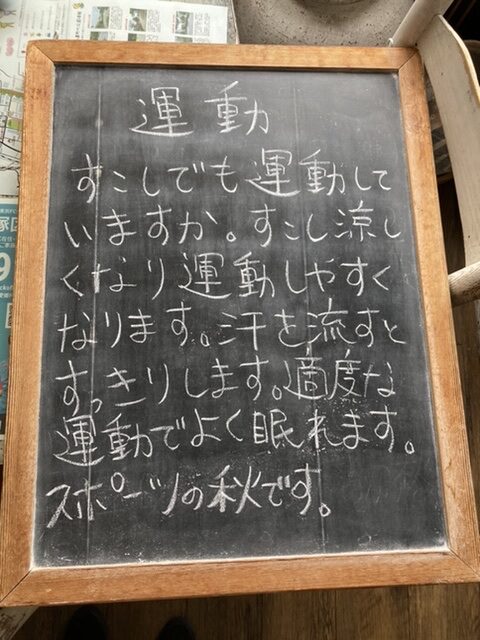 運動
すこしでも運動して
いますか。すこし涼し
くなり運動しやすく
なります。汗を流すと
すっきりします。適度な
運動でよく眠れます。
スポーツの秋です。